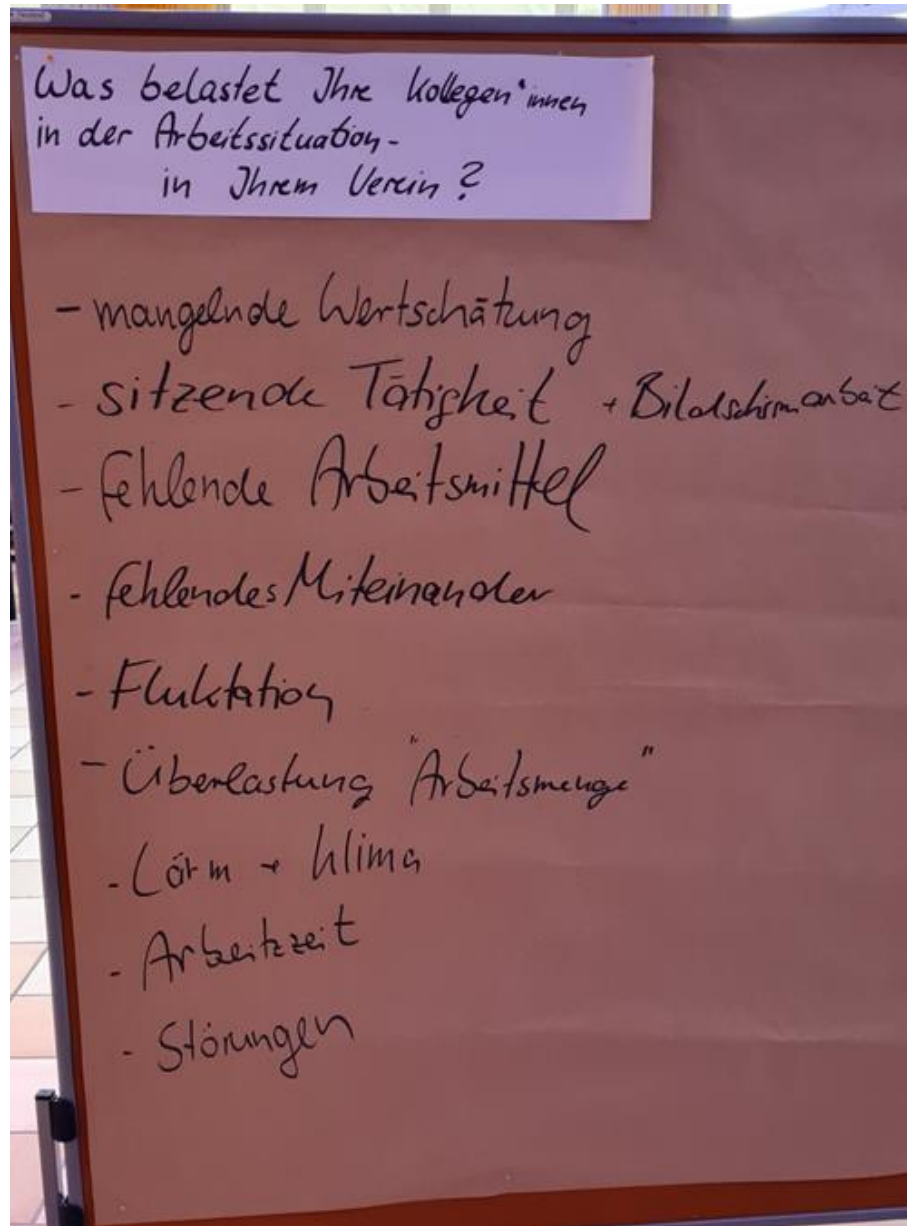 Was belastet Ihre Kollegen*innen
in der Arbeitssituation -
in Ihrem Verein?
- mangelnde Wertschätzung
- sitzende Tätigkeit + Bildschirmarbeit
- fehlende Arbeitsmittel
- fehlendes Miteinander
- Fluktation
- Überlastung "Arbeitsmenge"
- Lärm + Klima
- Arbeitzeit
- Störungen